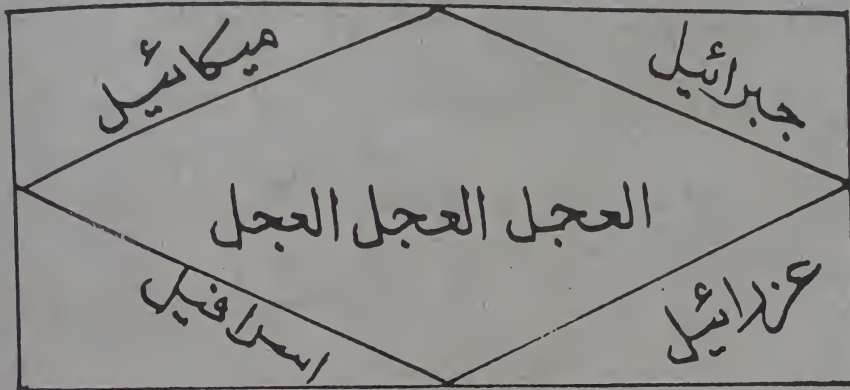 جبرائيل
ميكائيل
العجل العجل العجل
عزرائيل
اسرافيل